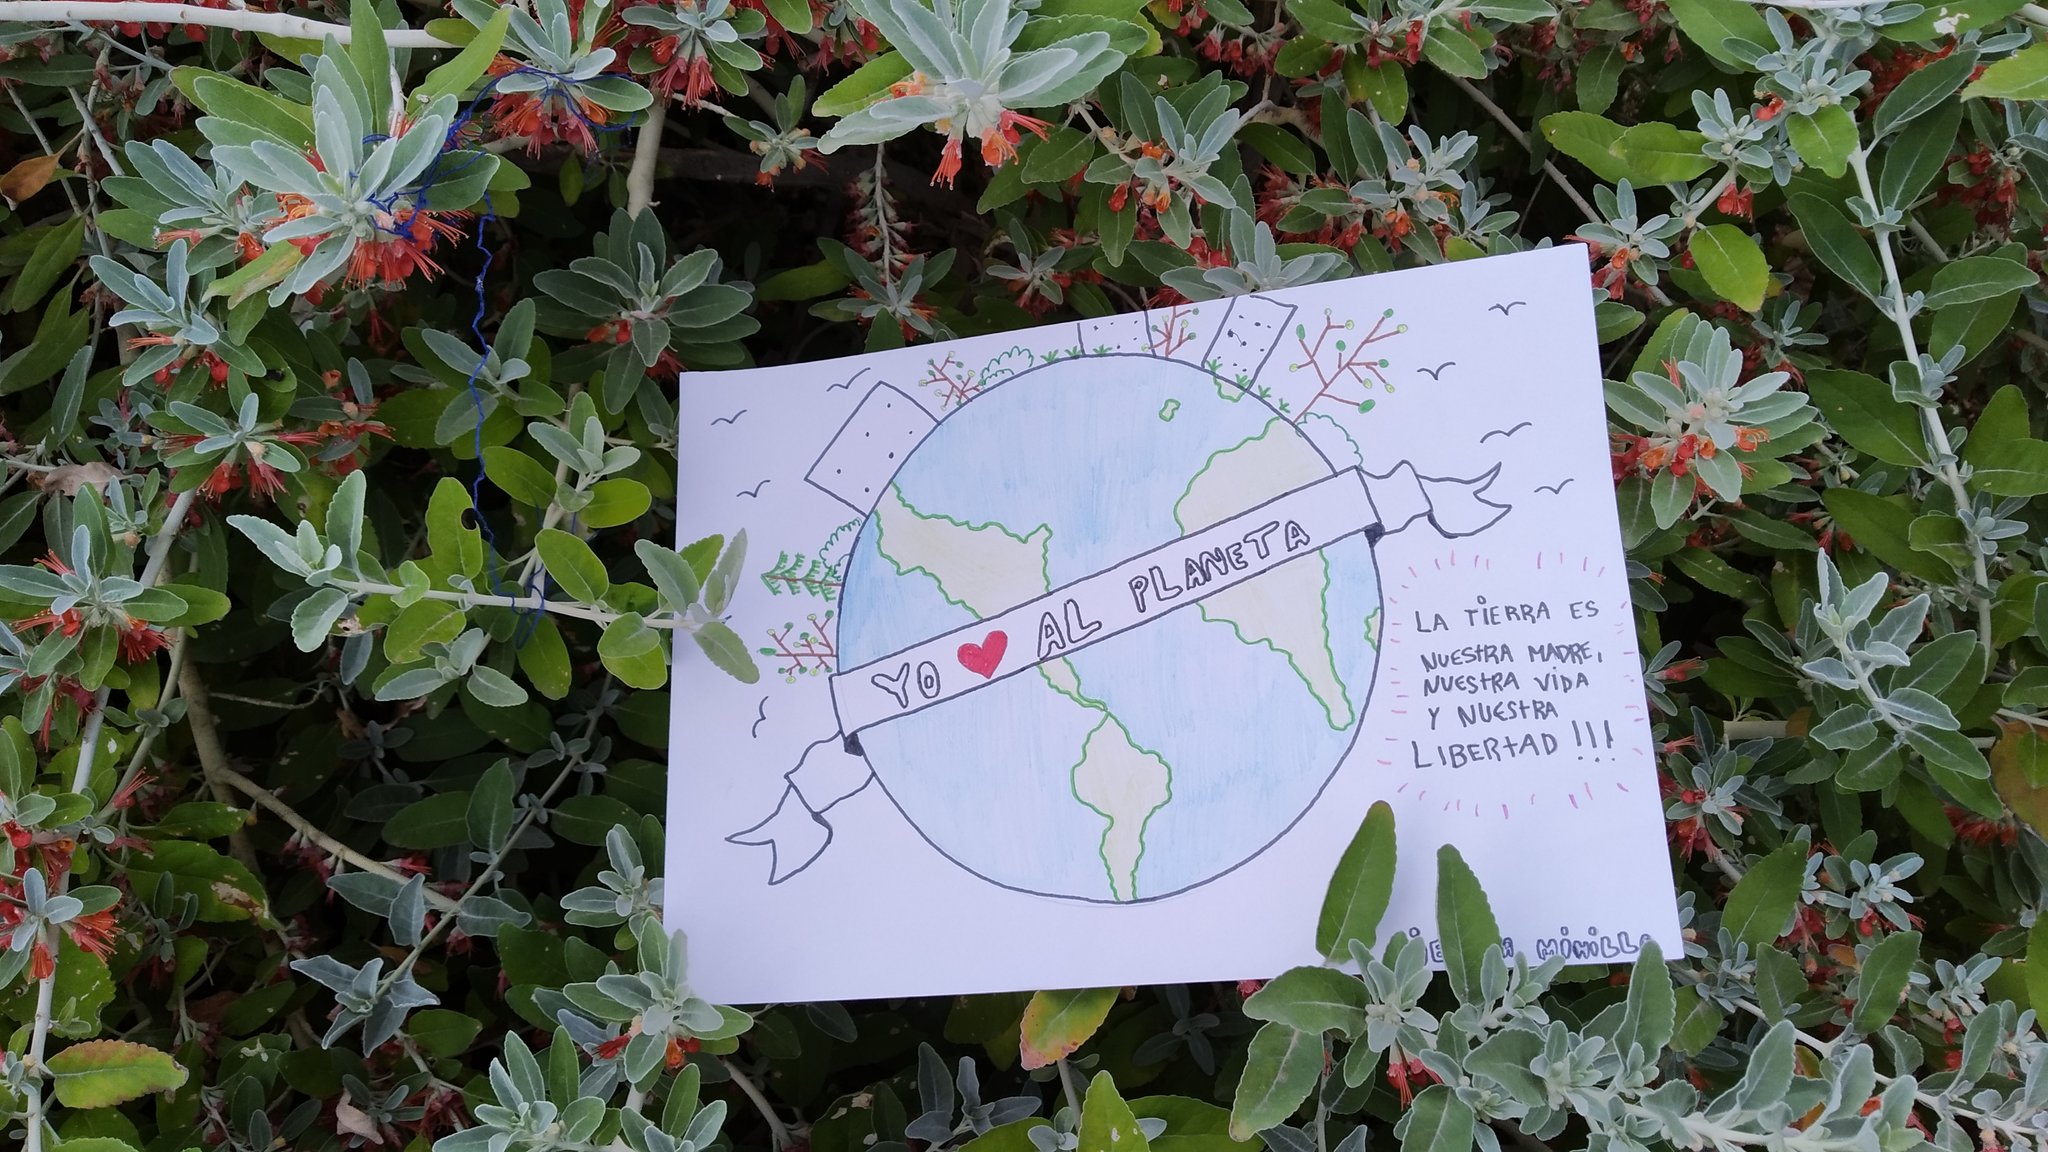 YO ❤ AL PLANETA
LA TIERRA ES
NUESTRA MADRE,
NUESTRA VIDA
Y NUESTRA
LIBERTAD !!!